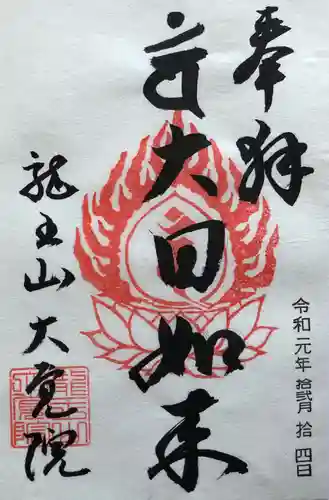 奉拝
大日如来
令和元年拾弐月拾四日
龍王山大覚院